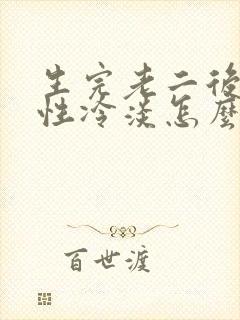 生完老二後
性冷淡怎麼
百世渡